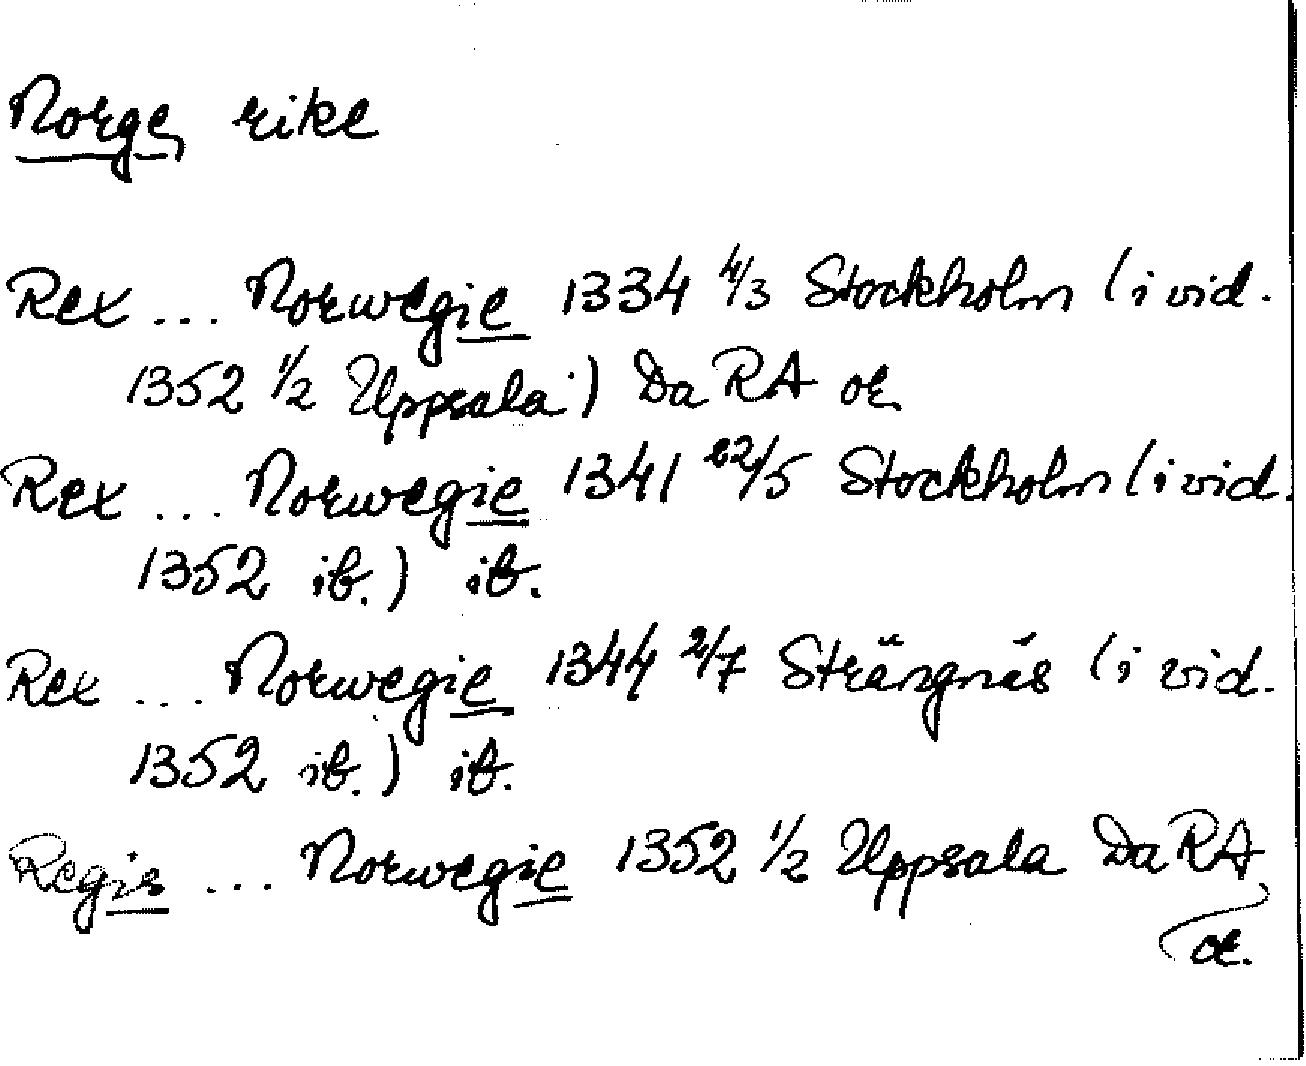 Norge, rike
Rex ... Norwegie 1334 4/3 Stockholm (i vid.
1352 1/2 Uppsala) Da RA or.
Rex ... Norwegie 1341 22/5 Stockholm (i vid.
1352 ib.) ib.
Rex ... Norwegie 1344 2/7 Strängnäs (i vid.
1352 ib.) ib.
Regis ... Norwegie 1352 1/2 Uppsala Da RA
or.